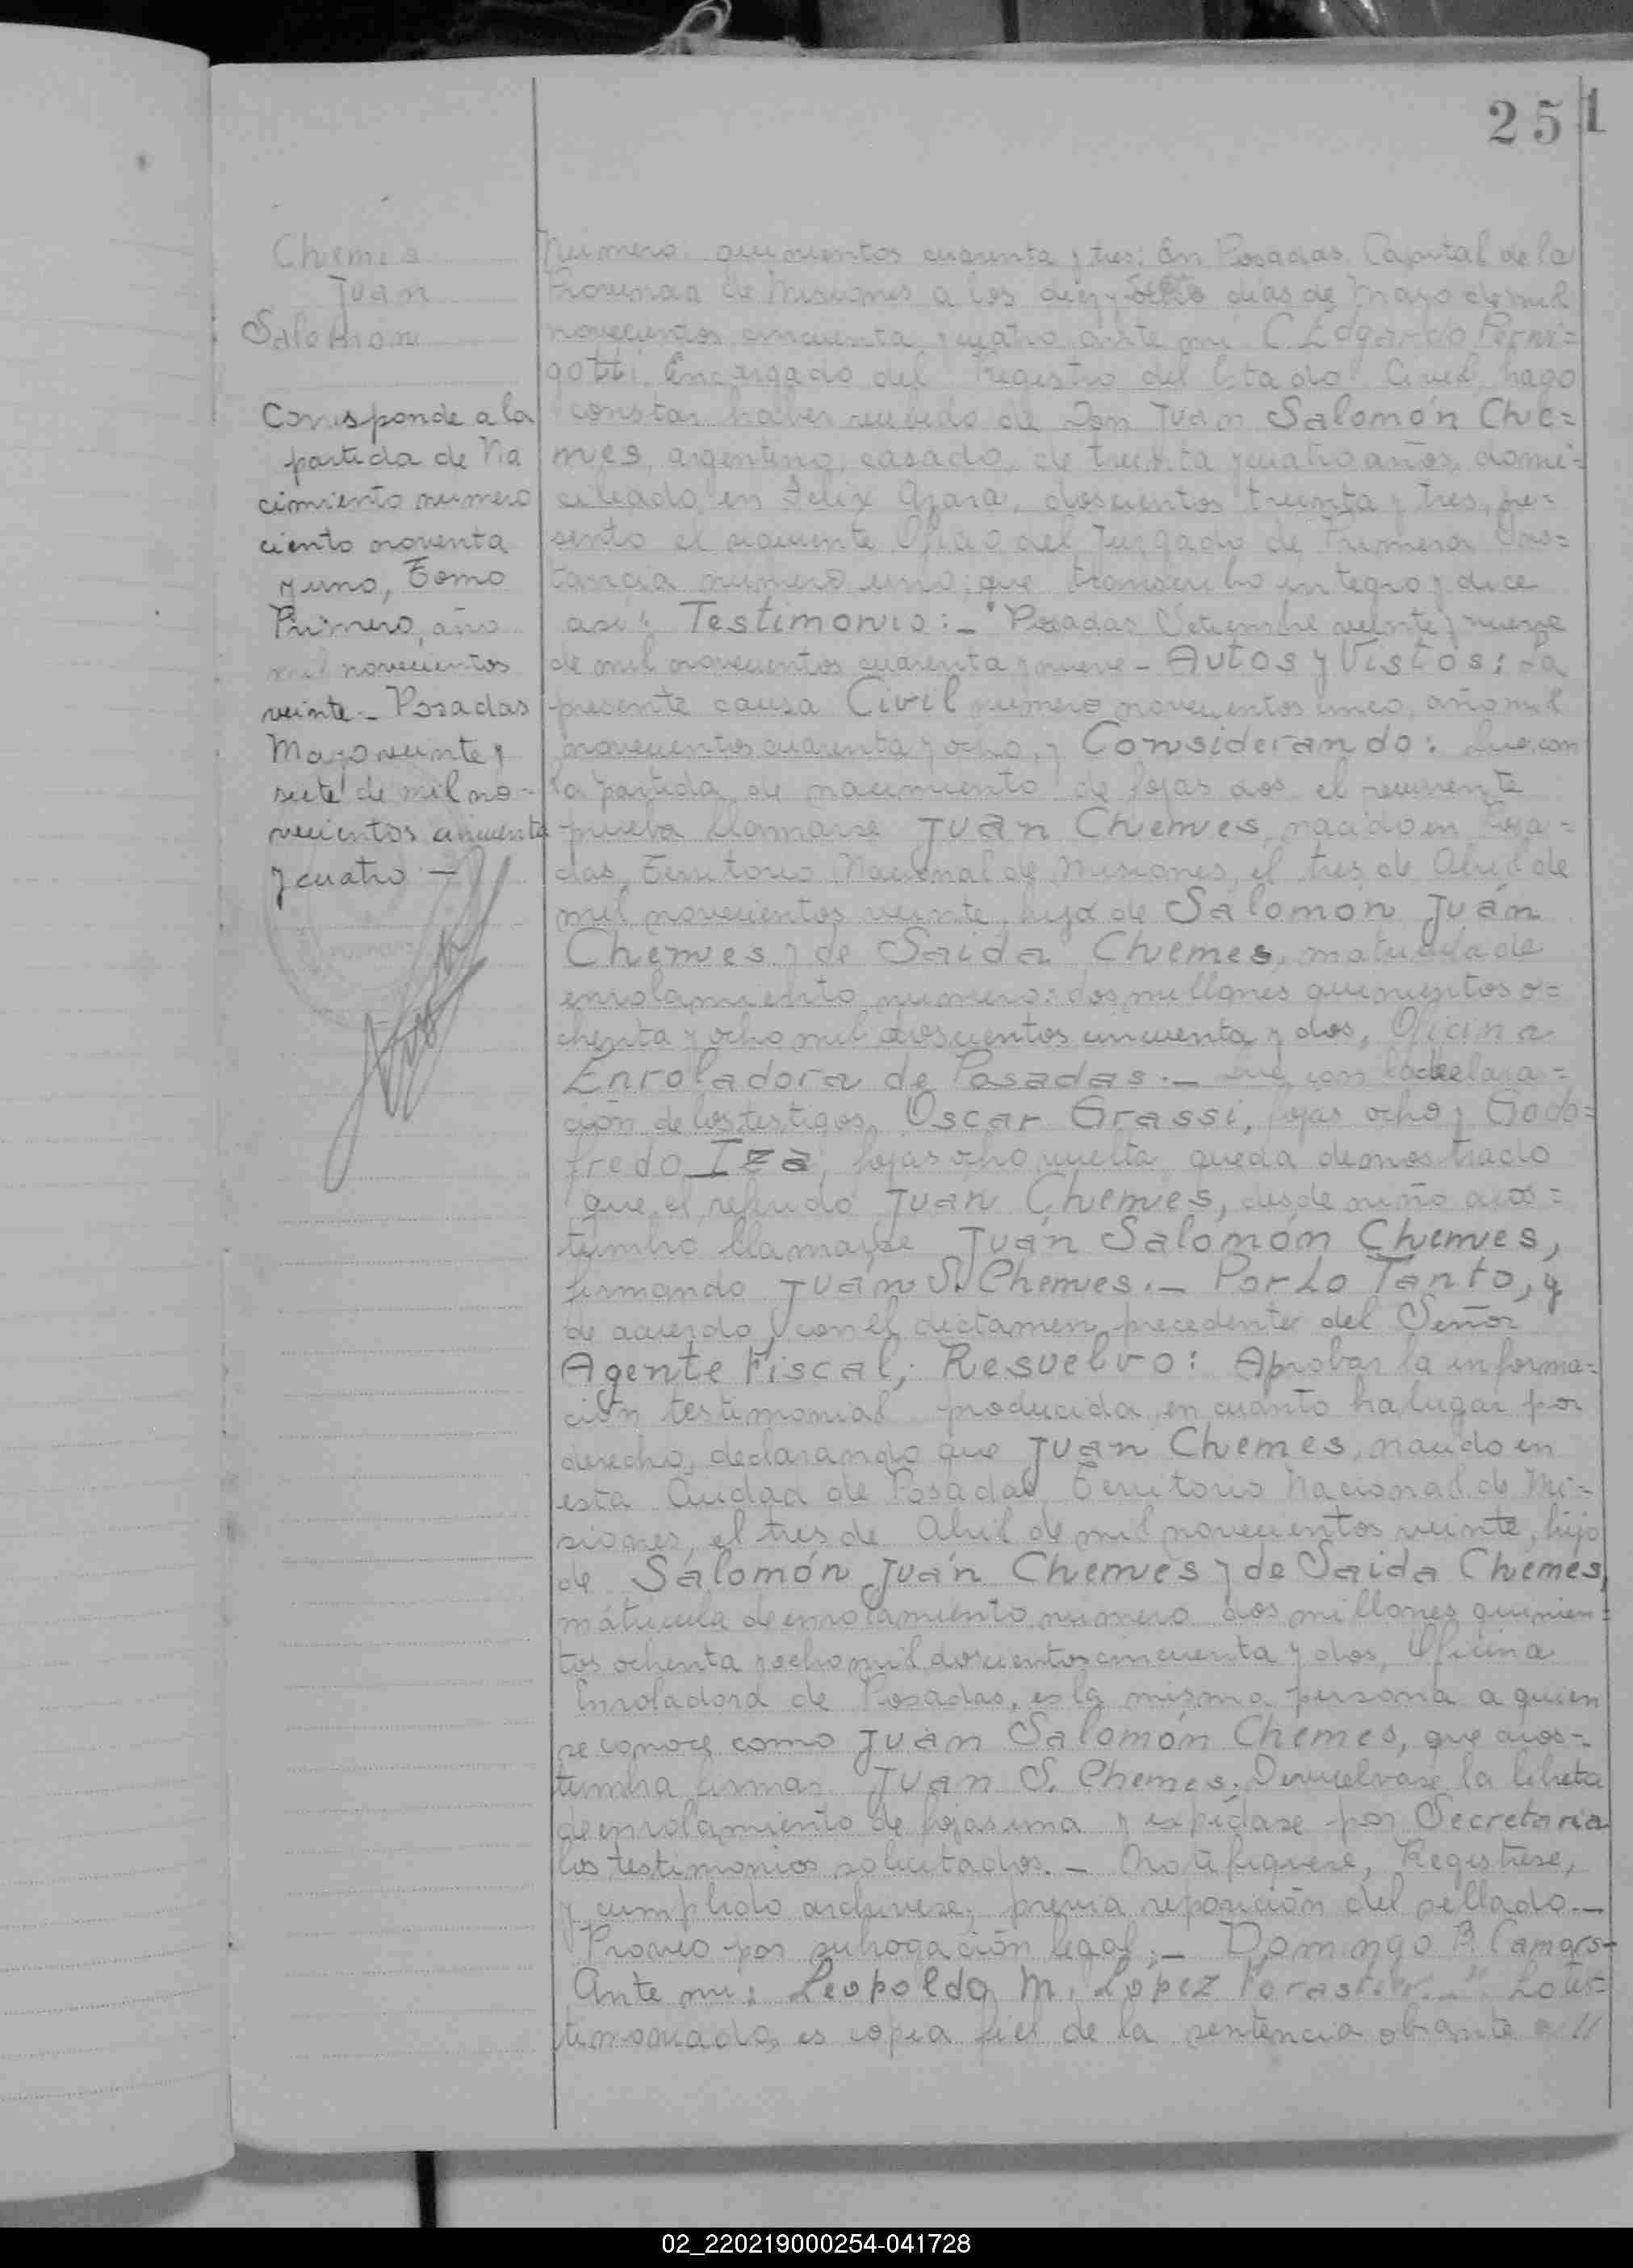 251
Chemes
Juan
Salomón
Corresponde a la
partida de Na
cimiento numero
ciento noventa
y uno, Tomo
Primero, año
mil novecientos
veinte._ Posadas
Mayo veinte y
siete de mil no=
vecientos cincuenta
y cuatro._
Número: quinientos cuarenta y tres: En Posadas, Capital de la
Provincia de Misiones a los diez y ocho dias de Mayo de mil
novecientos cincuenta y cuatro ante mi C. Edgardo Perni=
gotti, Encargado del Registro del Estado Civil, hago
constar haber recibido de Don Juan Salomón Che=
mes, argentino, casado, de treinta y cuatro años, domi=
ciliado en Felix Azara, doscientos treinta y tres, pre=
sentó el siguiente Oficio del Juzgado de Primera Ins=
tancia número uno; que transcribo integro y dice
asi: Testimonio:_ "Posadas, Setiembre veinte y nueve
de mil novecientos cuarenta y nueve._ Autos y Vistos: La
presente causa Civil número novecientos cinco, año mil
novecientos cuarenta y ocho, y Considerando: Que, con
la partida de nacimiento de fojas dos el recurrente
prueba llamarse Juan Chemes, nacido en Posa=
das, Territorio Nacional de Misiones, el tres de Abril de
mil novecientos veinte, hijo de Salomón Juán
Chemes y de Saida Chemes, matricula de
enrolamiento numero: dos millones quinientos o=
chenta y ocho mil doscientos cincuenta y dos, Oficina
Enroladora de Posadas._ Que, con la declara=
ción de los testigos, Oscar Grassi, fojas ocho y Godo=
fredo Iza, fojas ocho vuelta queda demostrado
que el referido Juán Chemes, desde niño acos=
tumbro llamarse Juán Salomón Chemes,
firmando Juán S. Chemes._ Por Lo Tanto, y
de acuerdo con el dictamen precedente del Señor
Agente Fiscal; Resuelvo: Aprobar la informa=
ción testimonial producida, en cuanto ha lugar por
derecho, declarando que Juan Chemes, nacido en
esta Ciudad de Posadas, Territorio Nacional de Mi=
siones, el tres de Abril de mil novecientos veinte, hijo
de Salomón Juán Chemes y de Saida Chemes,
mátricula de enrolamiento número dos millones quinien=
tos ochenta y ocho mil doscientos cincuenta y dos, Oficina
Enroladora de Posadas, es la misma persona a quien
se conoce como Juán Salomón Chemes, que acos=
tumbra firmar Juan S. Chemes. Devuelvase la libreta
de enrolamiento de fojas una y expídase por Secretaria
los testimonios solicitados._ Notifiquese, Registrese,
y cumplido archivese, previa reposición del sellado._
Proveo por subrogación legal._ Domingo B. Camors_
Ante mi: Leopoldo M. López Forastier._" Lo tes=
timoniado, es copia fiel de la sentencia obrante a //
02_220219000254-041728